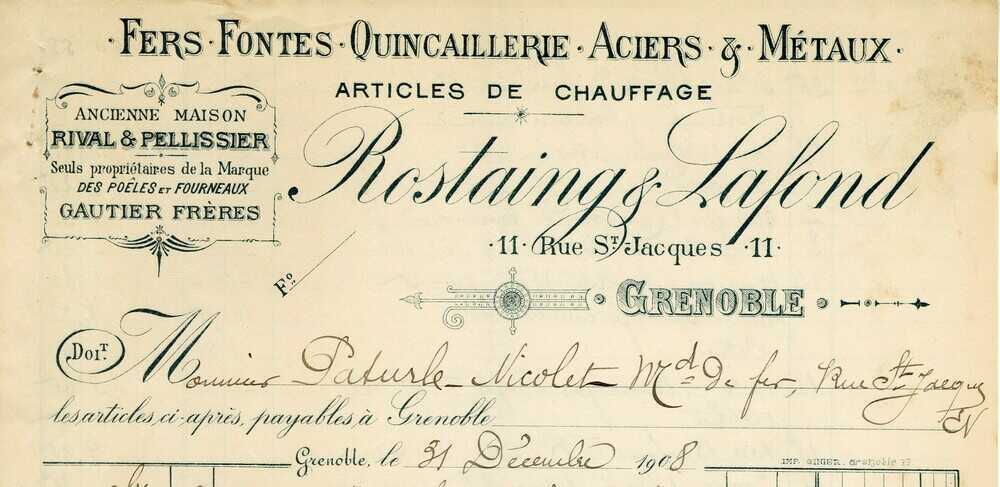 · FERS · FONTES · QUINCAILLERIE · ACIERS · & · MÉTAUX ·
ARTICLES DE CHAUFFAGE
ANCIENNE MAISON
RIVAL & PELLISSIER
Seuls propriétaires de la Marque
DES POÊLES ET FOURNEAUX
GAUTIER FRÈRES
Rostaing & Lafond
· 11 · Rue St-Jacques · 11 ·
Fo.
GRENOBLE
Doit Monsieur Paturle-Nicolet Md de fer, Rue St Jacques
les articles ci-après, payables à Grenoble EV
Grenoble, le 31 Décembre 1908
IMP. GINIER. Grenoble